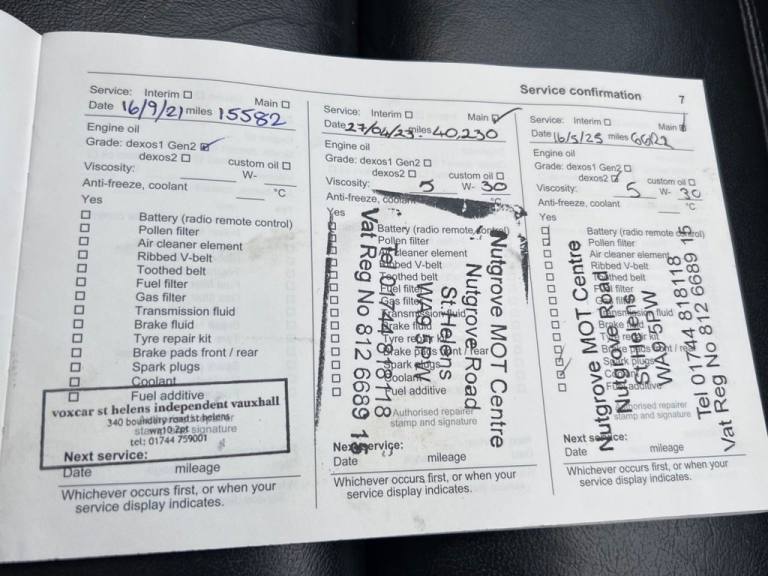 Service confirmation 7
Service: Interim
Main
Date 16/9/21 miles 15582
Engine oil
Grade: dexos1 Gen2
dexos2 custom oil
Viscosity: W-
Anti-freeze, coolant °C
Yes
Battery (radio remote control)
Pollen filter
Air cleaner element
Ribbed V-belt
Toothed belt
Fuel filter
Gas filter
Transmission fluid
Brake fluid
Tyre repair kit
Brake pads front / rear
Spark plugs
Coolant
Fuel additive
voxcar st helens independent vauxhall
340 boundary road st helens
wa10 2pt
stamp and signature
tel: 01744 759001
Next service:
Date mileage
Whichever occurs first, or when your
service display indicates.
Service: Interim
Main
Date 27/04/23 miles 40,230
Engine oil
Grade: dexos1 Gen2
dexos2 custom oil
Viscosity: 5 W- 30
Anti-freeze, coolant °C
Yes
Battery (radio remote control)
Pollen filter
Air cleaner element
Ribbed V-belt
Toothed belt
Fuel filter
Gas filter
Transmission fluid
Brake fluid
Tyre repair kit
Brake pads front / rear
Spark plugs
Coolant
Fuel additive
Nutgrove MOT Centre
Nutgrove Road
St Helens
WA9 5PW
Tel 01744 818118
Vat Reg No 812 6689 15
Authorised repairer
stamp and signature
Next service:
Date mileage
Whichever occurs first, or when your
service display indicates.
Service: Interim
Main
Date 16/5/25 miles
Engine oil
Grade: dexos1 Gen2
dexos2 custom oil
Viscosity: 5 W- 30
Anti-freeze, coolant °C
Yes
Battery (radio remote control)
Pollen filter
Air cleaner element
Ribbed V-belt
Toothed belt
Fuel filter
Gas filter
Transmission fluid
Brake fluid
Tyre repair kit
Brake pads front / rear
Spark plugs
Coolant
Fuel additive
Nutgrove MOT Centre
Nutgrove Road
St Helens
WA9 5PW
Tel 01744 818118
Vat Reg No 812 6689 15
Authorised repairer
stamp and signature
Next service:
Date mileage
Whichever occurs first, or when your
service display indicates.